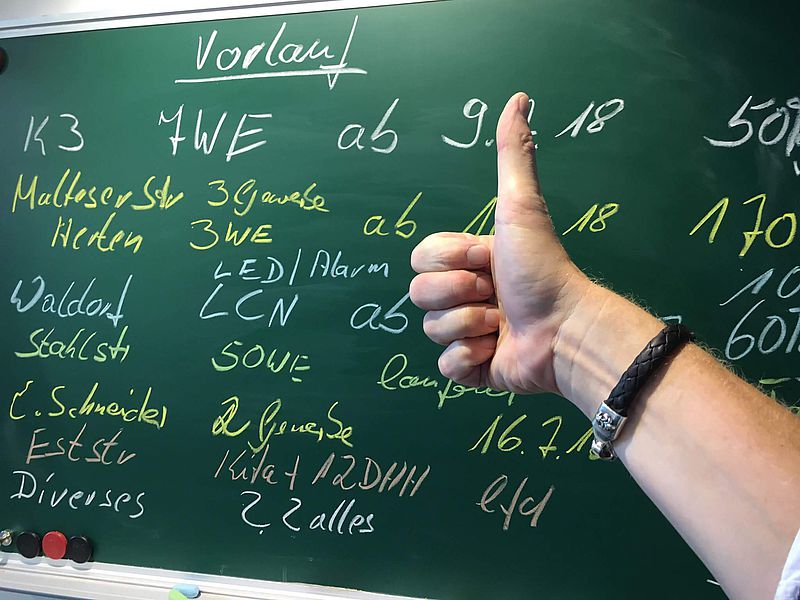 Vorlauf
K3 7WE ab 9. 18 50
Malteser Str 3 Gewerbe
Herten 3WE ab 1 18 170
LED/Alarm
Waldorf LCN ab 60T
Stahlstr 50WE
E. Schneider 2 Gewerbe 16.7.1
Eststr Kita + 12DHH lfd
Diverses ? ? alles